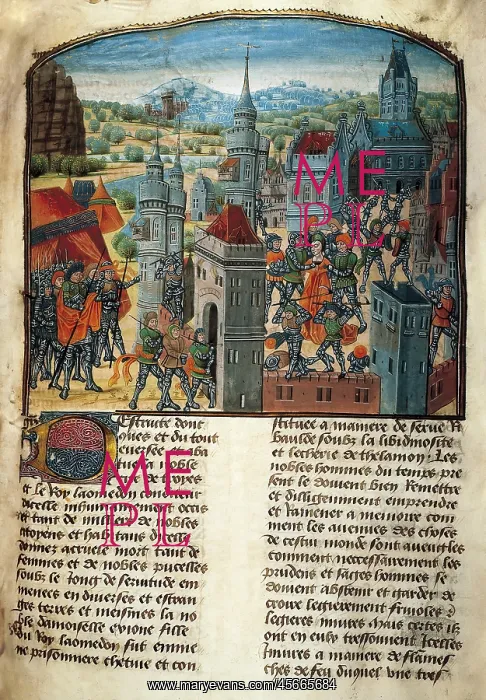 ME
PL
Estruite dont
ques et du tout
noble
ME
PL
troyes
le Roy laomedon
occis
tant de nobles
citoyens et
mort tant de
femmes et de nobles pucelles
soubz le Joug de seruitude em
menees en diuerses et estran
ges terres et mesmes la no
ble damoiselle exione fille
du Roy laomedon fut emme
nee prisonniere chetiue et con
stituee a maniere de serue R
baulde soubz la libidinosite
et lecherie de thelamon. Les
nobles hommes du temps pre
sent se doiuent bien Remettre
et diligemment emprendre
et Ramener a memoire com
ment les auenues des choses
de cestui monde sont aueugles
comment neccessairement les
prudens et sages hommes se
doiuent abstenir et garder de
legierement friuoles
legieres Iniures mais certes ilz
ont en eulx Icelles
Iniures a maniere de flames
ches de feu duquel vne tres
www.maryevans.com/45665684